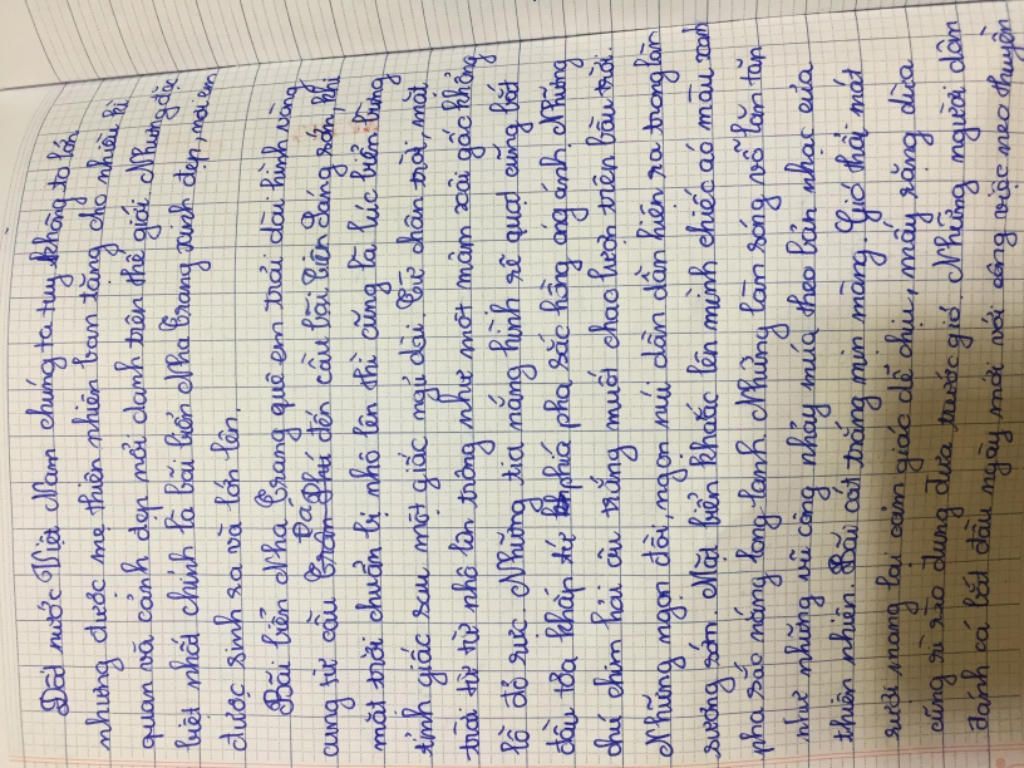 Đất nước Việt Nam chúng ta tuy không to lớn
nhưng được mẹ thiên nhiên ban tặng cho nhiều kì
quan và cảnh đẹp nổi danh trên thế giới. Nhưng đặc
biệt nhất chính là bãi biển Nha Trang xinh đẹp, nơi em
được sinh ra và lớn lên.
Bãi biển Nha Trang quê em trải dài hình vòng
cung từ cầu Trần Phú đến bãi tiên. Sáng sớm, khi
mặt trời chuẩn bị nhô lên thì cũng là lúc biển bừng
tỉnh giấc sau một giấc ngủ dài. Từ chân trời, mặt
trời từ từ nhô lên trông như một mâm xôi gấc khổng
lồ đỏ rực. Những tia nắng hình rẽ quạt cũng bắt
đầu tỏa khắp từ phía pha sắc hồng óng ánh. Những
chú chim hải âu trắng muốt chao lượn trên bầu trời.
Những ngọn đồi, ngọn núi dần dần hiện ra trong làn
sương sớm. Mặt biển khoác lên mình chiếc áo màu xanh
pha sắc nắng long lanh. Những làn sóng vỗ lăn tăn
như những vũ công nhảy múa theo bản nhạc của
thiên nhiên. Bãi cát trắng mịn màng. Gió thổi mát
rượi mang lại cảm giác dễ chịu, mấy rặng dừa
cũng rì rào đung đưa trước gió. Những người dân
đánh cá bắt đầu ngày mới với công việc neo thuyền